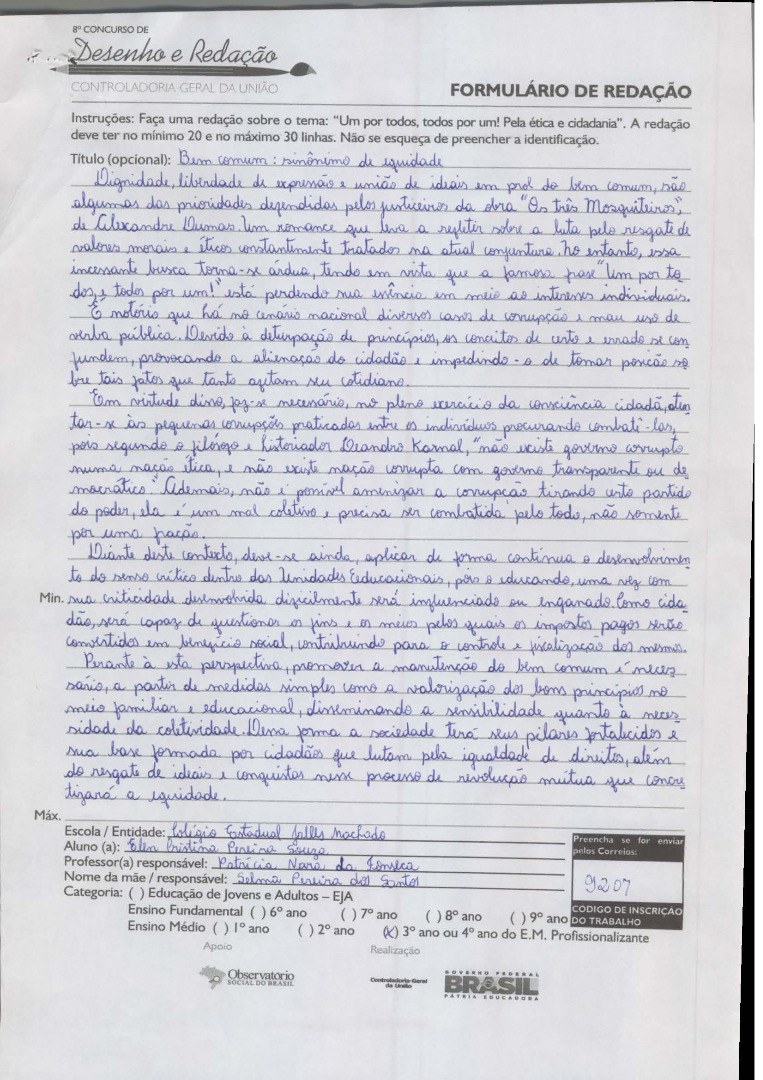 8º CONCURSO DE
Desenho e Redação
CONTROLADORIA-GERAL DA UNIÃO
FORMULÁRIO DE REDAÇÃO
Instruções: Faça uma redação sobre o tema: "Um por todos, todos por um! Pela ética e cidadania". A redação
deve ter no mínimo 20 e no máximo 30 linhas. Não se esqueça de preencher a identificação.
Título (opcional): Bem comum: sinônimo de equidade
Dignidade, liberdade de expressão e união de ideais em prol do bem comum, são
algumas das prioridades defendidas pelos justiceiros da obra "Os três Mosquiteiros",
de Alexandre Dumas. Um romance que leva a refletir sobre a luta pelo resgate de
valores morais e éticos constantemente tratados na atual conjuntura. No entanto, essa
incessante busca torna-se árdua, tendo em vista que a famosa frase "Um por to
dos, e todos por um!" está perdendo sua essência em meio ao interesses individuais.
É notório que há no cenário nacional diversos casos de corrupção e mau uso de
verba pública. Devido à deturpação de princípios, os conceitos de certo e errado se con
fundem, provocando a alienação do cidadão e impedindo-o de tomar posição so
bre tais fatos que tanto agitam seu cotidiano.
Em virtude disso, faz-se necessário, no pleno exercício da consciência cidadã, aten
tar-se às pequenas corrupções praticadas entre os indivíduos procurando combatê-las,
pois segundo o filósofo e historiador Leandro Karnal, "não existe governo corrupto
numa nação ética, e não existe nação corrupta com governo transparente ou de
mocrático." Ademais, não é possível amenizar a corrupção tirando certo partido
do poder, ela é um mal coletivo e precisa ser combatida pelo todo, não somente
por uma fração.
Diante deste contexto, deve-se ainda, aplicar de forma contínua o desenvolvimen
to do senso crítico dentro das Unidades Educacionais, pois o educando, uma vez com
Min. sua criticidade desenvolvida dificilmente será influenciado ou enganado. Como cida
dão, será capaz de questionar os fins e os meios pelos quais os impostos pagos serão
convertidos em benefício social, contribuindo para o controle e fiscalização dos mesmos.
Perante à esta perspectiva, promover a manutenção do bem comum é neces
sário, a partir de medidas simples como a valorização dos bons princípios no
meio familiar e educacional, disseminando a sensibilidade quanto à neces
sidade da coletividade. Dessa forma a sociedade terá seus pilares fortalecidos e
sua base formada por cidadãos que lutam pela igualdade de direitos, além
do resgate de ideais e conquistas nesse processo de revolução mútua que concre
tizará a equidade.
Máx.
Escola / Entidade: Colégio Estadual Jalles Machado
Aluno (a): Elen Cristina Pereira Souza
Professor(a) responsável: Patrícia Nara da Fonseca
Nome da mãe / responsável: Selma Pereira dos Santos
Preencha se for enviar
pelos Correios:
9207
CODIGO DE INSCRIÇÃO
DO TRABALHO
Categoria: ( ) Educação de Jovens e Adultos – EJA
Ensino Fundamental ( ) 6º ano ( ) 7º ano ( ) 8º ano ( ) 9º ano
Ensino Médio ( ) 1º ano ( ) 2º ano (X) 3º ano ou 4º ano do E.M. Profissionalizante
Apoio Realização
Observatório
SOCIAL DO BRASIL
Controladoria-Geral
da União
GOVERNO FEDERAL
BRASIL
PÁTRIA EDUCADORA